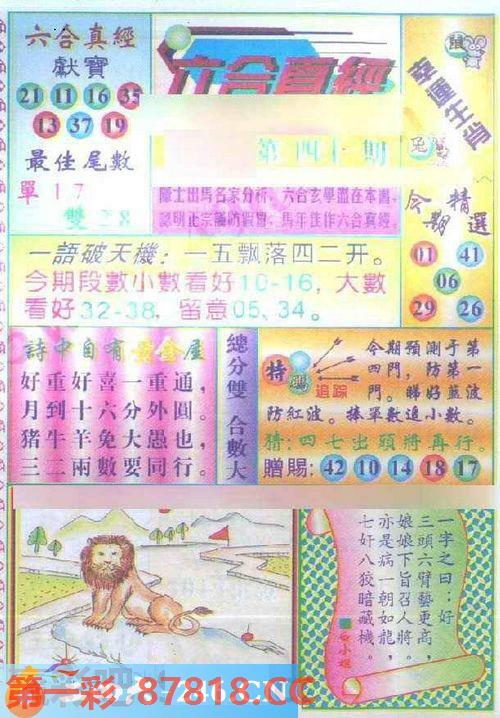 六合真經
獻寶
21 11 16 35
13 37 19
最佳尾數
單17
雙28
六合真經
第四十期
鼠
幸運生肖
兔
隱士出馬名家分析，六合玄學盡在本書，
認明正宗謹防假冒，馬年佳作六合真經。
今期精選
01 41
06
29 26
一語破天機：一五飄落四二开。
今期段數小數看好10-16，大數
看好32-38，留意05、34。
詩中自有黃金屋
好重好喜一重通，
月到十六分外圓。
豬牛羊兔大愚也，
三二兩數要同行。
總分雙 合數大
特碼
追踪
今期預測于第
四門，防第一
門。睇好藍波
防紅波。捧單數追小數。
猜：四七出頭將再行。
贈賜：42 10 14 18 17
一字之曰：好
三頭六臂藝更高，
娘娘下旨召人將。
亦是病一朝如龍，
七奸八狡暗藏機。
白小姐
第一彩 87818.CC